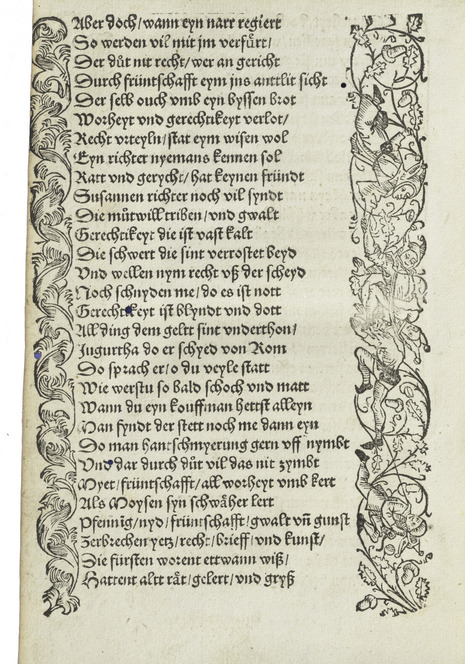 Aber doch/ wann eyn narr regiert
So werden vil mit jm verfuͤrt/
Der duͦt nit recht/ wer an gericht
Durch früntschafft eym jns anttlit sicht
Der selb ouch vmb eyn byssen brot
Worheyt vnd gerechtikeyt verlot/
Recht vrteyln/ stat eym wisen wol
Eyn richter nyemans kennen sol
Ratt vnd gerycht/ hat keynen fründt
Susannen richter noch vil syndt
Die muͦtwill triben/ vnd gwalt
Gerechtikeyt die ist vast kalt
Die schwert die sint verrostet beyd
Vnd wellen nym recht vß der scheyd
Noch schnyden me/ do es ist nott
Gerechtikeyt ist blyndt vnd dott
All ding dem geltt sint vnderthon/
Jugurtha do er schyed von Rom
Do sprach er/ o du veyle statt
Wie werstu so bald schoch vnd matt
Wann du eyn kouffman hettst alleyn
Man fyndt der stett noch me dann eyn
Do man hantschmyerung gern vff nymbt
Vnd dar durch duͦt vil das nit zymbt
Myet/ früntschafft/ all worheyt vmb kert
Als Moysen syn schwaͤher lert
Pfennig/ nyd/ früntschafft/ gwalt vn̄ gunst
Zerbrechen yetz/ recht/ brieff/ vnd kunst/
Die fürsten worent ettwann wiß/
Hattent altt raͤt/ gelert/ vnd gryß